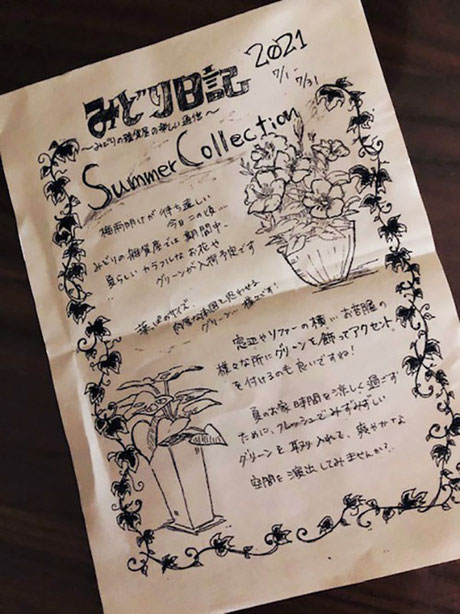 みどり日記
2021
7/1~7/31
~みどりの雑貨屋の楽しい通信~
Summer Collection
梅雨明けが待ち遠しい
今日この頃…
みどりの雑貨屋では期間中、
夏らしいカラフルなお花や
グリーンが入荷予定です
南国を思わせる
グリーン 様々です!
窓辺やソファーの横… お部屋の
様々な所にグリーンを飾ってアクセント
を付けるのも良いですね!
夏のお家時間を涼しく過ごす
ために、フレッシュでみずみずしい
グリーンを取り入れて、爽やかな
空間を演出してみませんか?